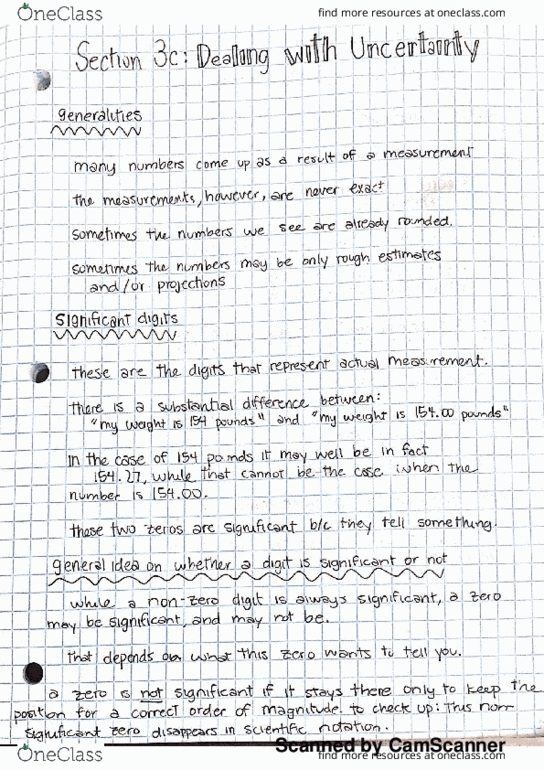 OneClass
find more resources at oneclass.com
Section 3c: Dealing with Uncertainty
generalities
many numbers come up as a result of a measurement
the measurements, however, are never exact
sometimes the numbers we see are already rounded.
sometimes the numbers may be only rough estimates
and/or projections
significant digits
these are the digits that represent actual measurement.
there is a substantial difference between:
"my weight is 154 pounds" and "my weight is 154.00 pounds"
in the case of 154 pounds it may well be in fact
154.27, while that cannot be the case when the
number is 154.00.
these two zeros are significant b/c they tell something.
general idea on whether a digit is significant or not
while a non-zero digit is always significant, a zero
may be significant, and may not be.
that depends on what this zero wants to tell you.
a zero is not significant if it stays there only to keep the
position for a correct order of magnitude. to check up: this non-
significant zero disappears in scientific notation.
Scanned by CamScanner
OneClass
find more resources at oneclass.com